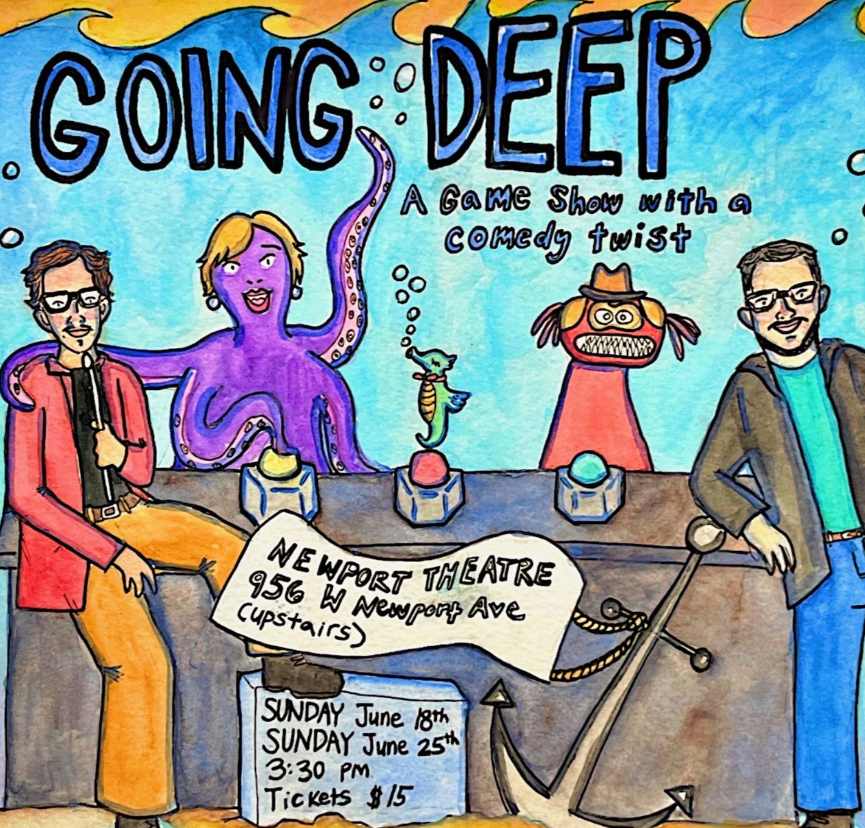 GOING DEEP
A Game Show with a
comedy twist
NEWPORT THEATRE
956 W Newport Ave
(upstairs)
SUNDAY June 18th
SUNDAY June 25th
3:30 PM
Tickets $15